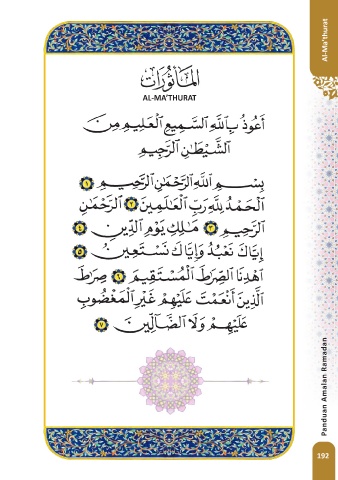 Al-Ma'thurat
المأثورات
AL-MA'THURAT
أَعُوذُ بِاللَّهِ السَّمِيعِ الْعَلِيمِ مِنَ
الشَّيْطَانِ الرَّجِيمِ
بِسْمِ اللَّهِ الرَّحْمَٰنِ الرَّحِيمِ ١
الْحَمْدُ لِلَّهِ رَبِّ الْعَالَمِينَ ٢ الرَّحْمَٰنِ
الرَّحِيمِ ٣ مَالِكِ يَوْمِ الدِّينِ ٤
إِيَّاكَ نَعْبُدُ وَإِيَّاكَ نَسْتَعِينُ ٥
اهْدِنَا الصِّرَاطَ الْمُسْتَقِيمَ ٦ صِرَاطَ
الَّذِينَ أَنْعَمْتَ عَلَيْهِمْ غَيْرِ الْمَغْضُوبِ
عَلَيْهِمْ وَلَا الضَّالِّينَ ٧
Panduan Amalan Ramadan
192